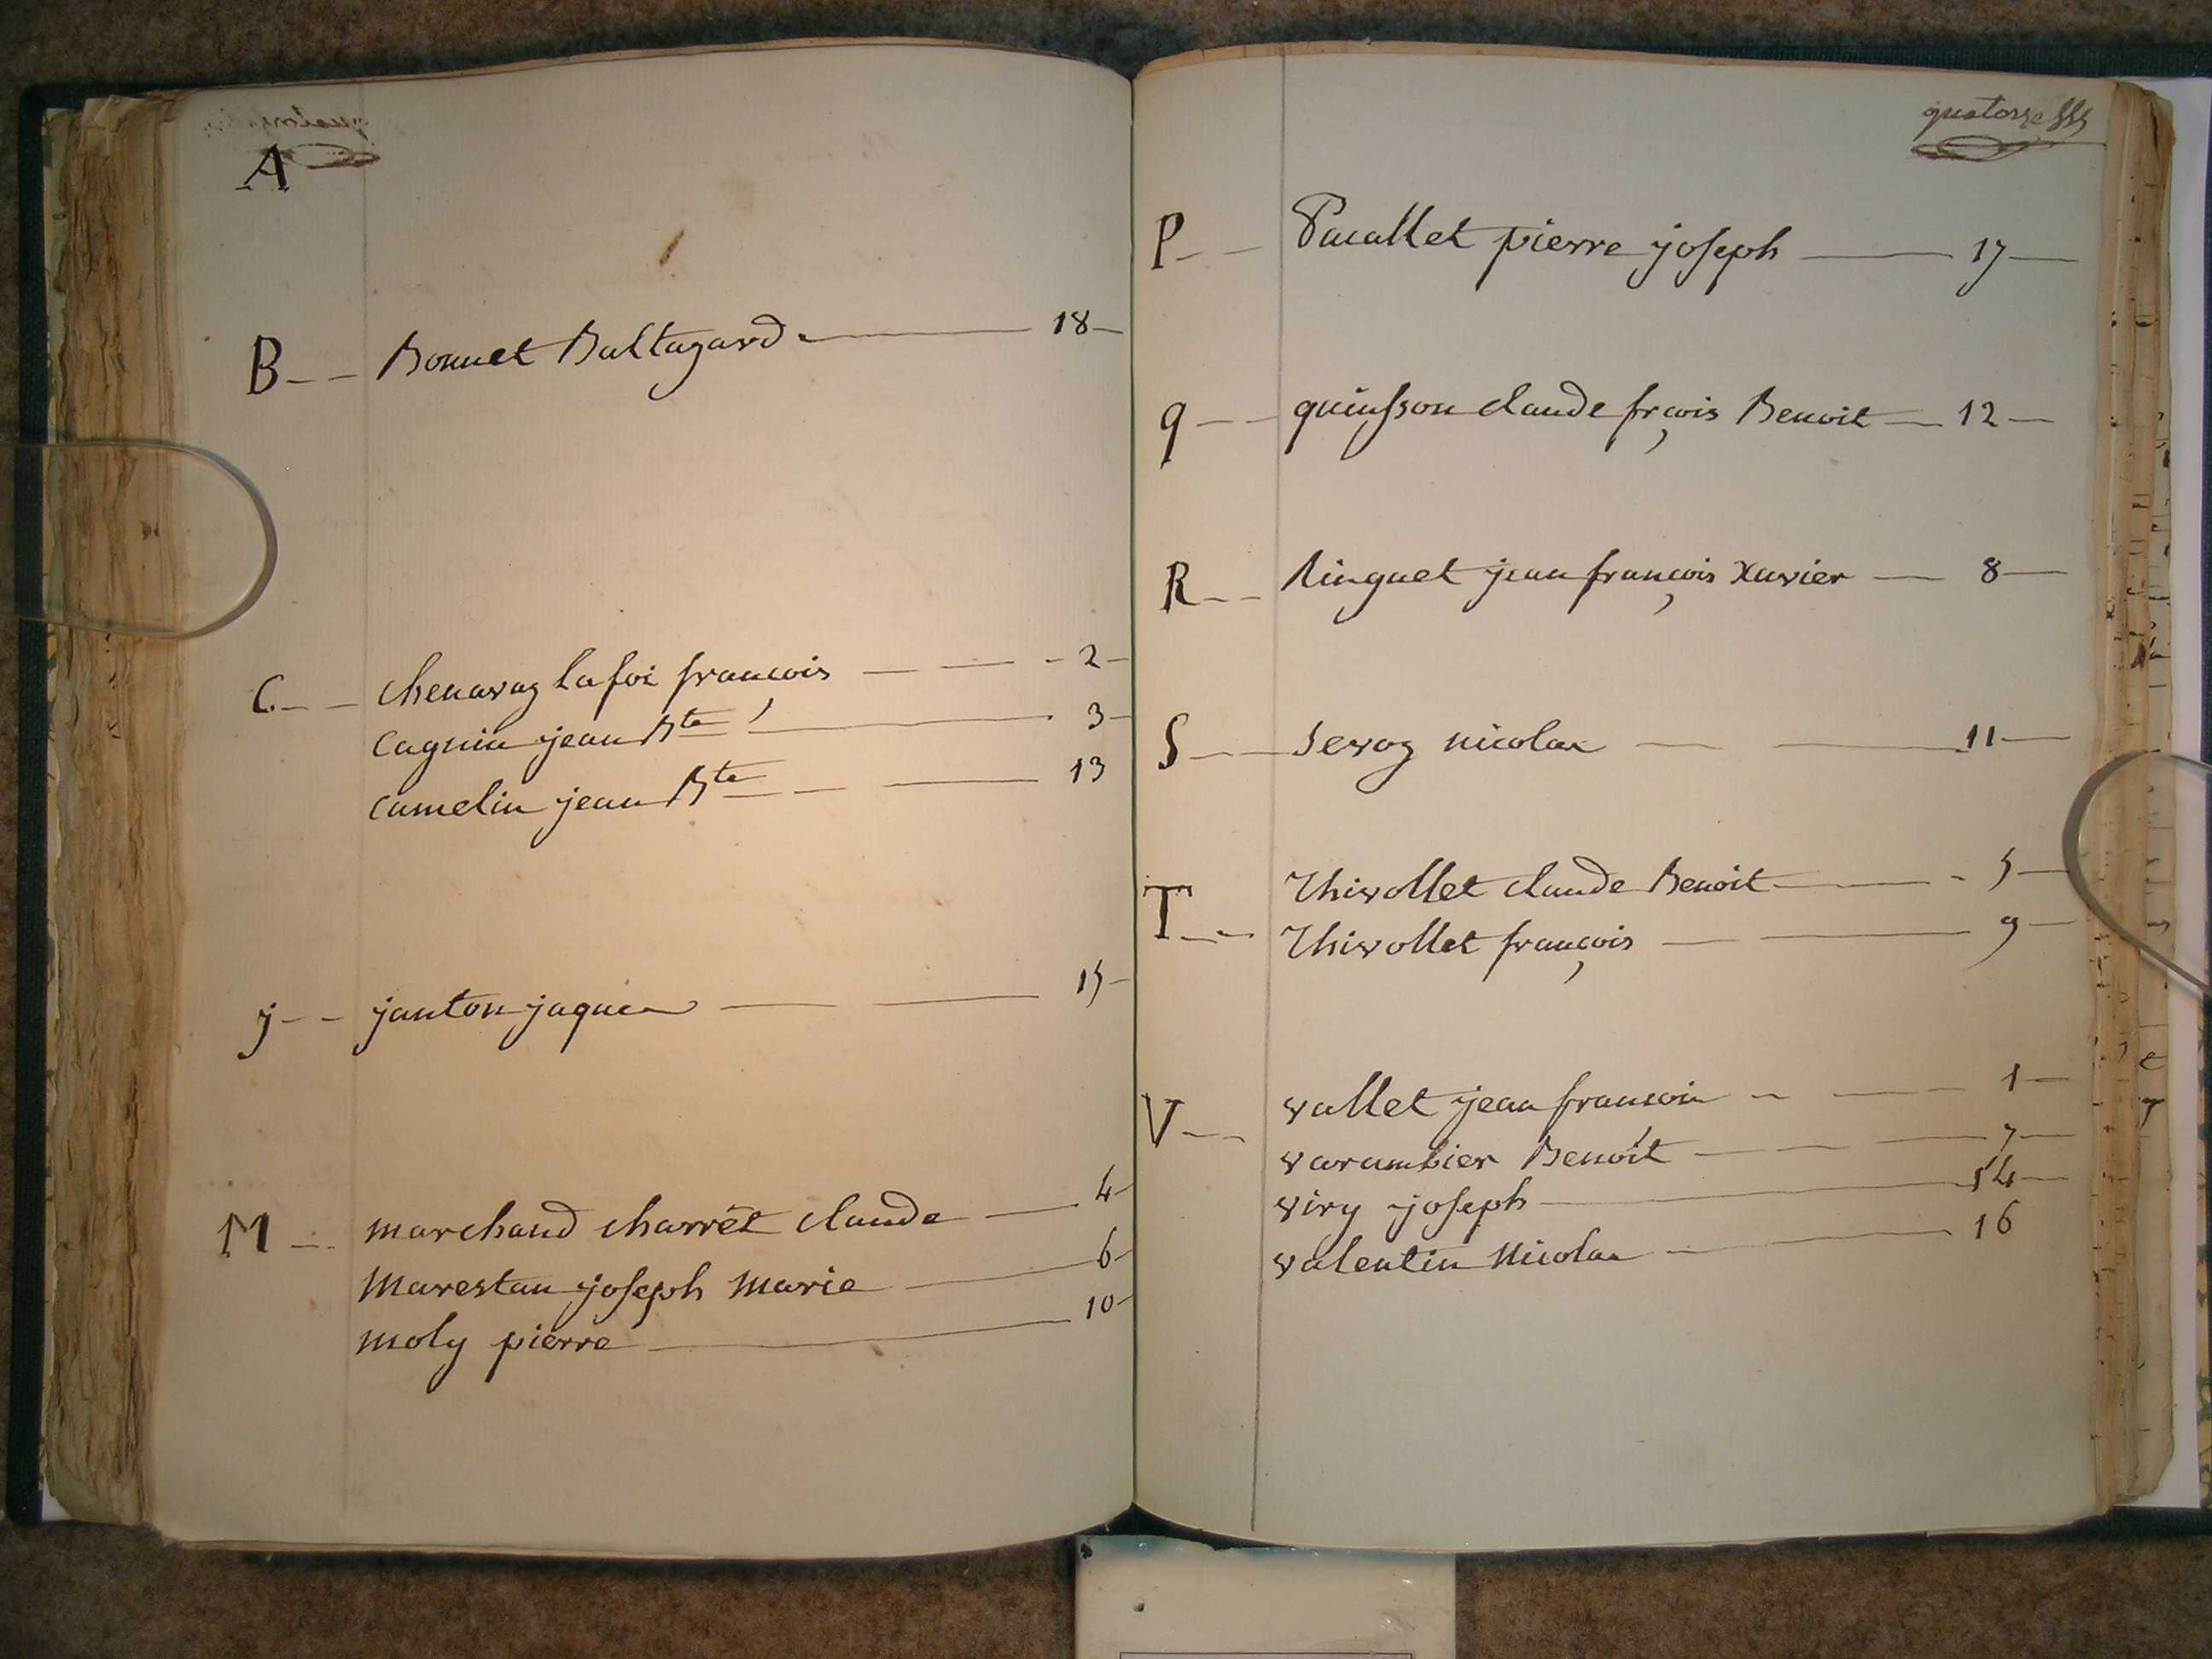 A
B -- Bonnet Baltazard 18
C -- chenavaz Lafoi francois 2
Cagnin jean Bte 3
Camelin jean Bte 13
j -- janton jaques 15
M -- marchand charrêt claude 4
Marestan joseph Marie 6
moly pierre 10
quatorze
P -- Pacallet pierre joseph 17
q -- quinsson claude frçois Benoit 12
R -- Ringuet jean françois Xavier 8
S -- Sevoz nicolas 11
T -- Thivollet claude Benoit 5
Thivollet françois 9
V -- vallet jean francois 1
varambier Benoit 7
viry joseph 14
valentin Nicolas 16